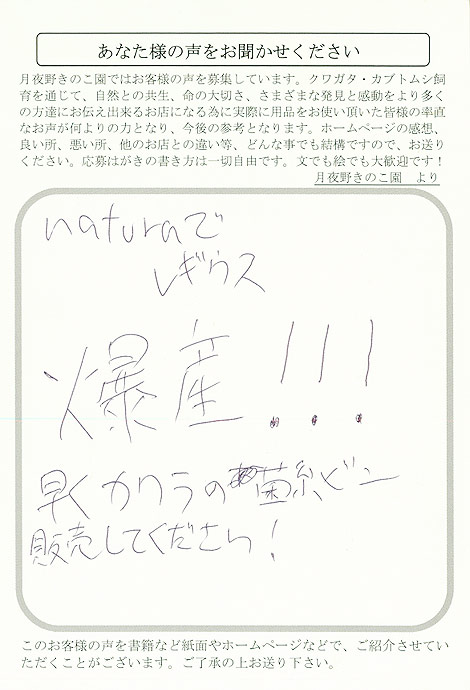 あなた様の声をお聞かせください
月夜野きのこ園ではお客様の声を募集しています。クワガタ・カブトムシ飼
育を通じて、自然との共生、命の大切さ、さまざまな発見と感動をより多く
の方達にお伝え出来るお店になる為に実際に用品をお使い頂いた皆様の率直
なお声が何よりの力となり、今後の参考となります。ホームページの感想、
良い所、悪い所、他のお店との違い等、どんな事でも結構ですので、お送り
ください。応募はがきの書き方は一切自由です。文でも絵でも大歓迎です！
月夜野きのこ園　より
naturaで
レギウス
爆産!!!
早くカワラの菌糸ビン
販売してください!
このお客様の声を書籍など紙面やホームページなどで、ご紹介させてい
ただくことがございます。ご了承の上お送り下さい。